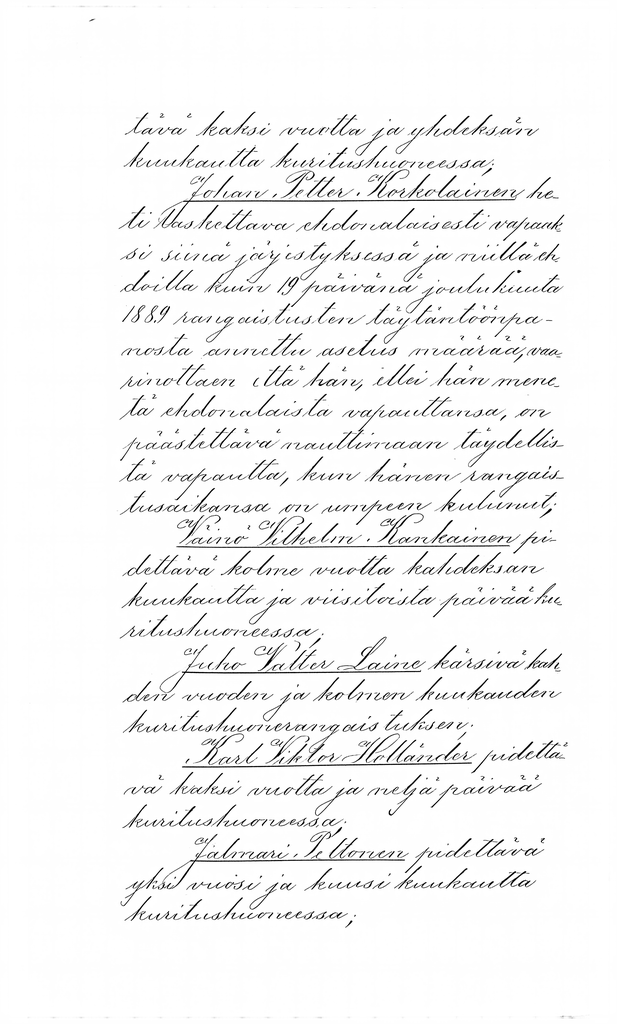 tävä kaksi vuotta ja yhdeksän
kuukautta kuritushuoneessa;
Johan Petter Korkolainen he-
ti laskettava ehdonalaisesti vapauk-
si siinä järjestyksessä ja niillä eh-
doilla kuin 19 päivänä joulukuuta
1889 rangaistusten täytäntöönpa-
nosta annettu asetus määrää, vaa-
rinottaen että hän, ellei hän mene-
tä ehdonalaista vapauttansa, on
päästettävä nauttimaan täydellis-
tä vapautta, kun hänen rangais-
tusaikansa on umpeen kulunut;
Väinö Vilhelm Kankainen pi-
dettävä kolme vuotta kahdeksan
kuukautta ja viisitoista päivää ku-
ritushuoneessa;
Juho Valter Laine kärsivä kah-
den vuoden ja kolmen kuukauden
kuritushuonerangaistuksen;
Karl Viktor Holländer pidettä-
vä kaksi vuotta ja neljä päivää
kuritushuoneessa;
Jalmari Peltonen pidettävä
yksi vuosi ja kuusi kuukautta
kuritushuoneessa;